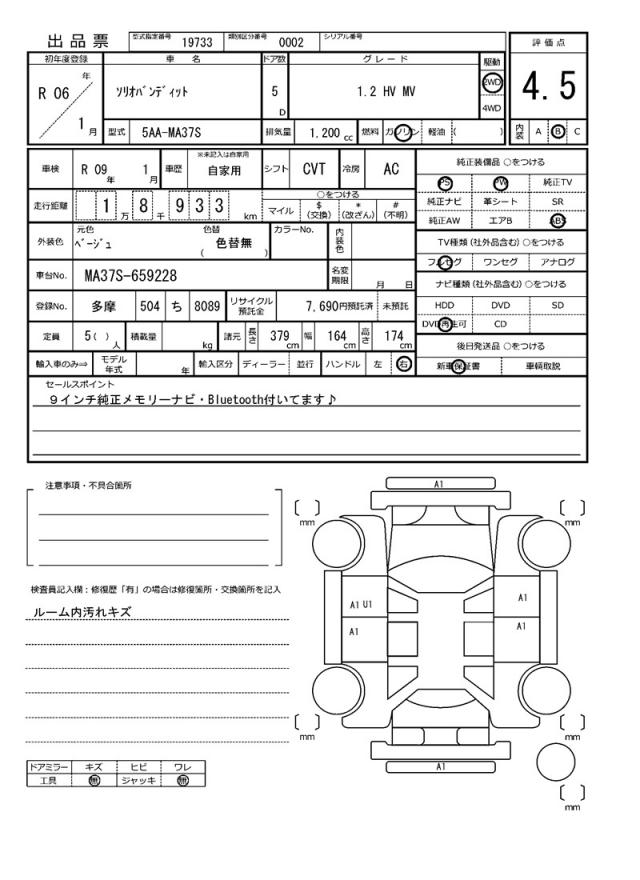 出品票 型式指定番号 19733 類別区分番号 0002 シリアル番号
評価点
4.5
内装 A B C
初年度登録 車名 ドア数 グレード 駆動
R 06 年 1 月
ソリオバンディット 5 D 1.2 HV MV 2WD 4WD
型式 5AA-MA37S 排気量 1.200 cc 燃料 ガソリン 軽油 ( )
車検 R 09 年 1 月 車歴 ※未記入は自家用 自家用 シフト CVT 冷房 AC
走行距離 1 万 8 千 9 3 3 km
○をつける
マイル $ (交換) * (改ざん) # (不明)
外装色 元色 ベージュ 色替 色替無 ( ) カラーNo. 内装色
車台No. MA37S-659228 名変期限 月 日
登録No. 多摩 504 ち 8089 リサイクル預託金 7,690円預託済 未預託
定員 5( ) 人 積載量 kg 諸元 長さ 379 cm 幅 164 cm 高さ 174 cm
輸入車のみ⇒ モデル年式 年 輸入区分 ディーラー 並行 ハンドル 左 右
純正装備品 ○をつける
PS PW 純正TV
純正ナビ 革シート SR
純正AW エアB ABS
TV種類 (社外品含む) ○をつける
フルセグ ワンセグ アナログ
ナビ種類 (社外品含む) ○をつける
HDD DVD SD
DVD再生可 CD
後日発送品 ○をつける
新車保証書 車輌取説
セールスポイント
9インチ純正メモリーナビ・Bluetooth付いてます♪
注意事項・不具合箇所
検査員記入欄：修復歴「有」の場合は修復箇所・交換箇所を記入
ルーム内汚れキズ
ドアミラー キズ ヒビ ワレ
工具 無 ジャッキ 無
A1
mm mm
A1 U1 A1
A1 A1
mm mm
A1
mm